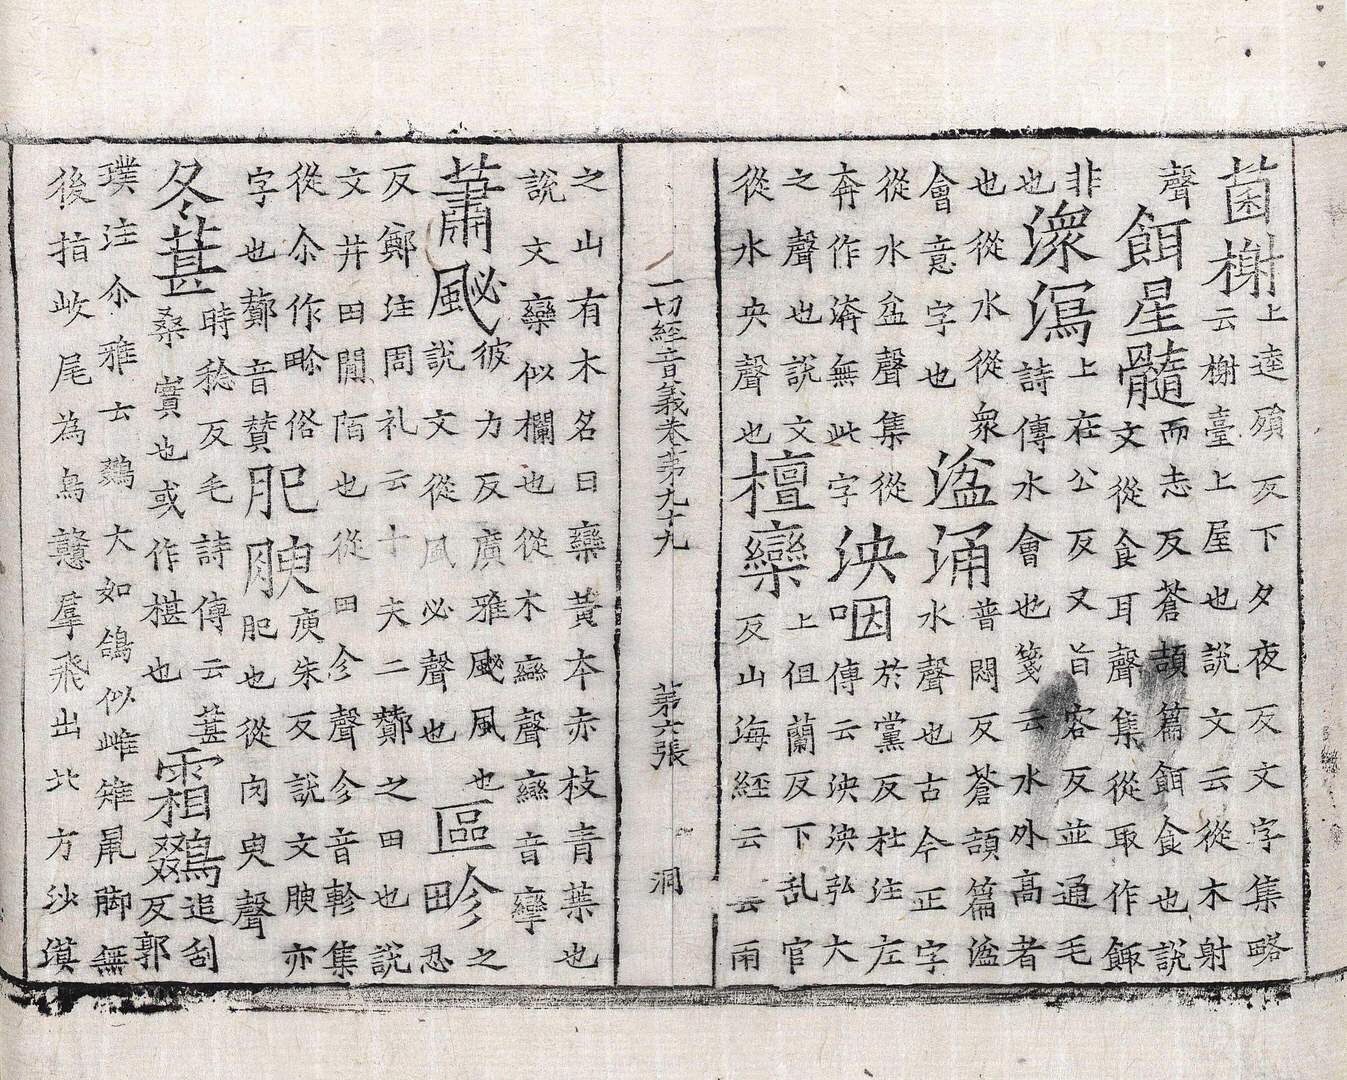 菌榭上逵殞反下夕夜反文字集略
云榭臺上屋也說文云從木射
聲餌星髓而志反蒼頡篇餌食也說
文從食耳聲集從取作
非上在公反又旨容反並通毛
也潨瀉詩傳水會也箋云水外高者
也從水從衆
會意字也湓涌普悶反蒼頡篇湓
水聲也古今正字
從水盆聲集從
奔作渀無此字泱咽於黨反杜注左
傳云泱泱弘大
之聲也說文
從水央聲也檀欒上徂蘭反下乱官
反山海経云雲雨
之山有木名曰欒黃本赤枝青葉也
說文欒似欄也從木䜌聲䜌音攣
蕭䬛彼力反廣雅䬛風也
說文從風必聲也區畛之
忍
反鄭注周礼云十夫二酇之田也說
文井田間陌也從田㐱聲㐱音軫集
從尒作畛俗
字也酇音贊肥腴庾朱反說文腴亦
肥也從肉臾聲
冬葚時稔反毛詩傳云葚
桑實也或作椹也霜鵽追刮
反郭
璞注尒雅云鵽大如鴿似雌雉鼠脚無
後指岐尾為鳥憨羣飛出北方沙漠
一切經音義卷第九十九 第六張 洞